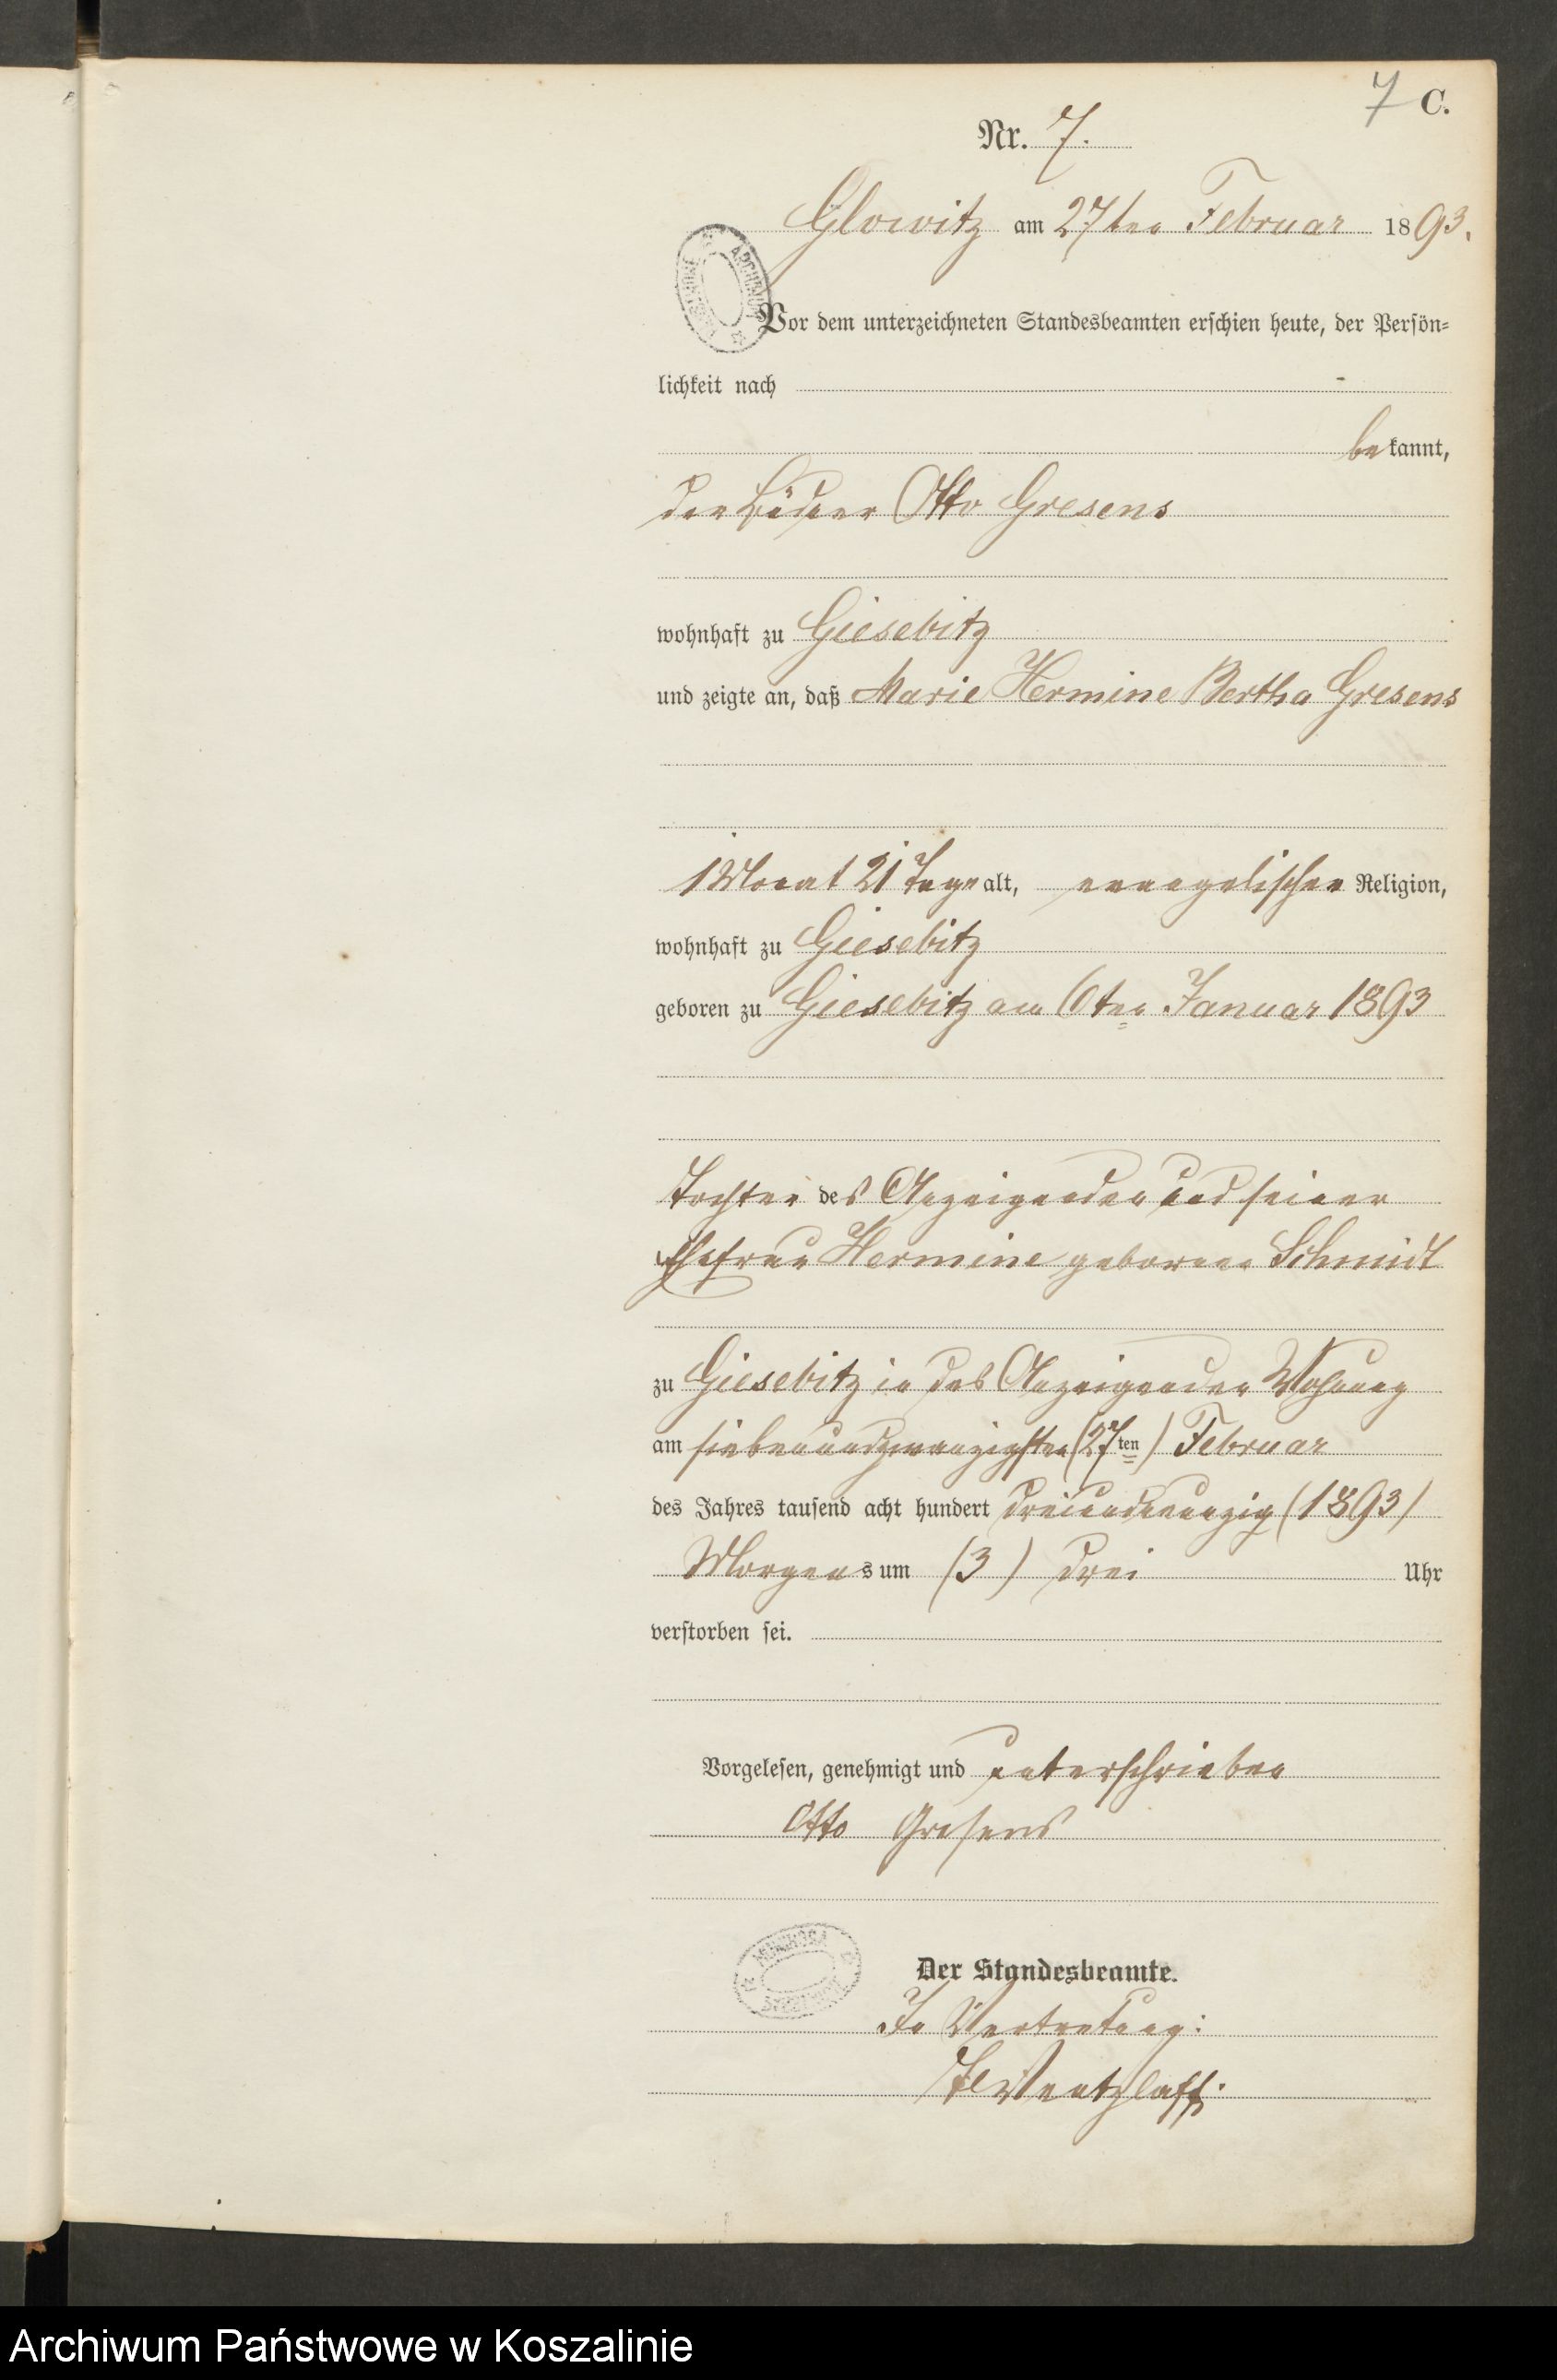 7 C.
Nr. 7.
Glowitz am 27ten Februar 1893.
Vor dem unterzeichneten Standesbeamten erschien heute, der Persön-
lichkeit nach
bekannt,
der Büdner Otto Gresens
wohnhaft zu Giesebitz
und zeigte an, daß Marie Hermine Bertha Gresens
1 Monat 21 Tage alt, evangelischer Religion,
wohnhaft zu Giesebitz
geboren zu Giesebitz am 6ten Januar 1893
Tochter des Anzeigenden und seiner
Ehefrau Hermine geborene Schmidt
zu Giesebitz in des Anzeigenden Wohnung
am siebenundzwanzigsten (27ten) Februar
des Jahres tausend acht hundert dreiundneunzig (1893)
Morgens um (3) drei Uhr
verstorben sei.
Vorgelesen, genehmigt und unterschrieben
Otto Gresens
Der Standesbeamte.
In Vertretung:
Wentzlaff.
Archiwum Państwowe w Koszalinie